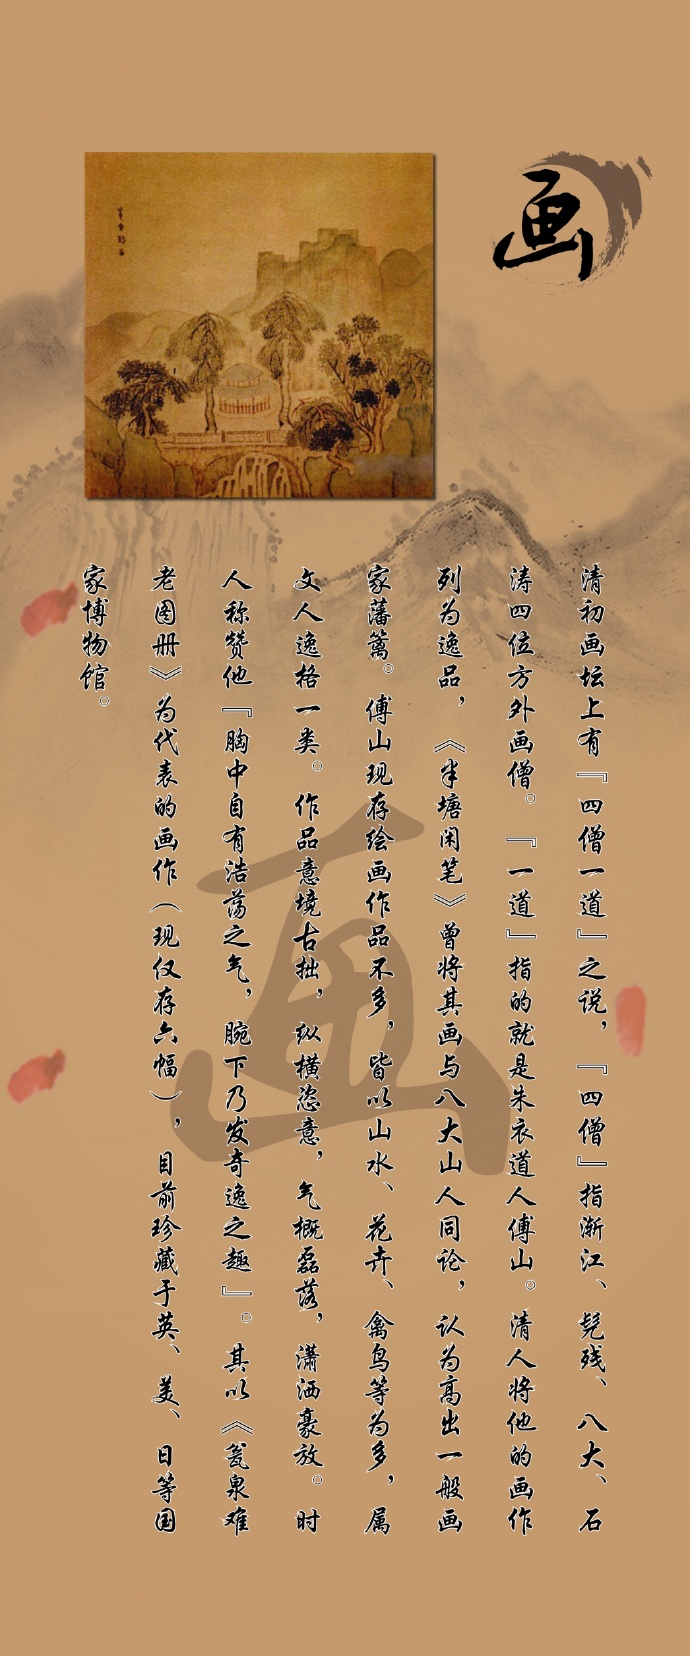 画
清初画坛上有『四僧一道』之说，『四僧』指渐江、髡残、八大、石
涛四位方外画僧。『一道』指的就是朱衣道人傅山。清人将他的画作
列为逸品，《半塘闲笔》曾将其画与八大山人同论，认为高出一般画
家藩篱。傅山现存绘画作品不多，皆以山水、花卉、禽鸟等为多，属
文人逸格一类。作品意境古拙，纵横恣意，气概磊落，潇洒豪放。时
人称赞他『胸中自有浩荡之气，腕下乃发奇逸之趣』。其以《瓮泉难
老图册》为代表的画作（现仅存六幅），目前珍藏于英、美、日等国
家博物馆。
画